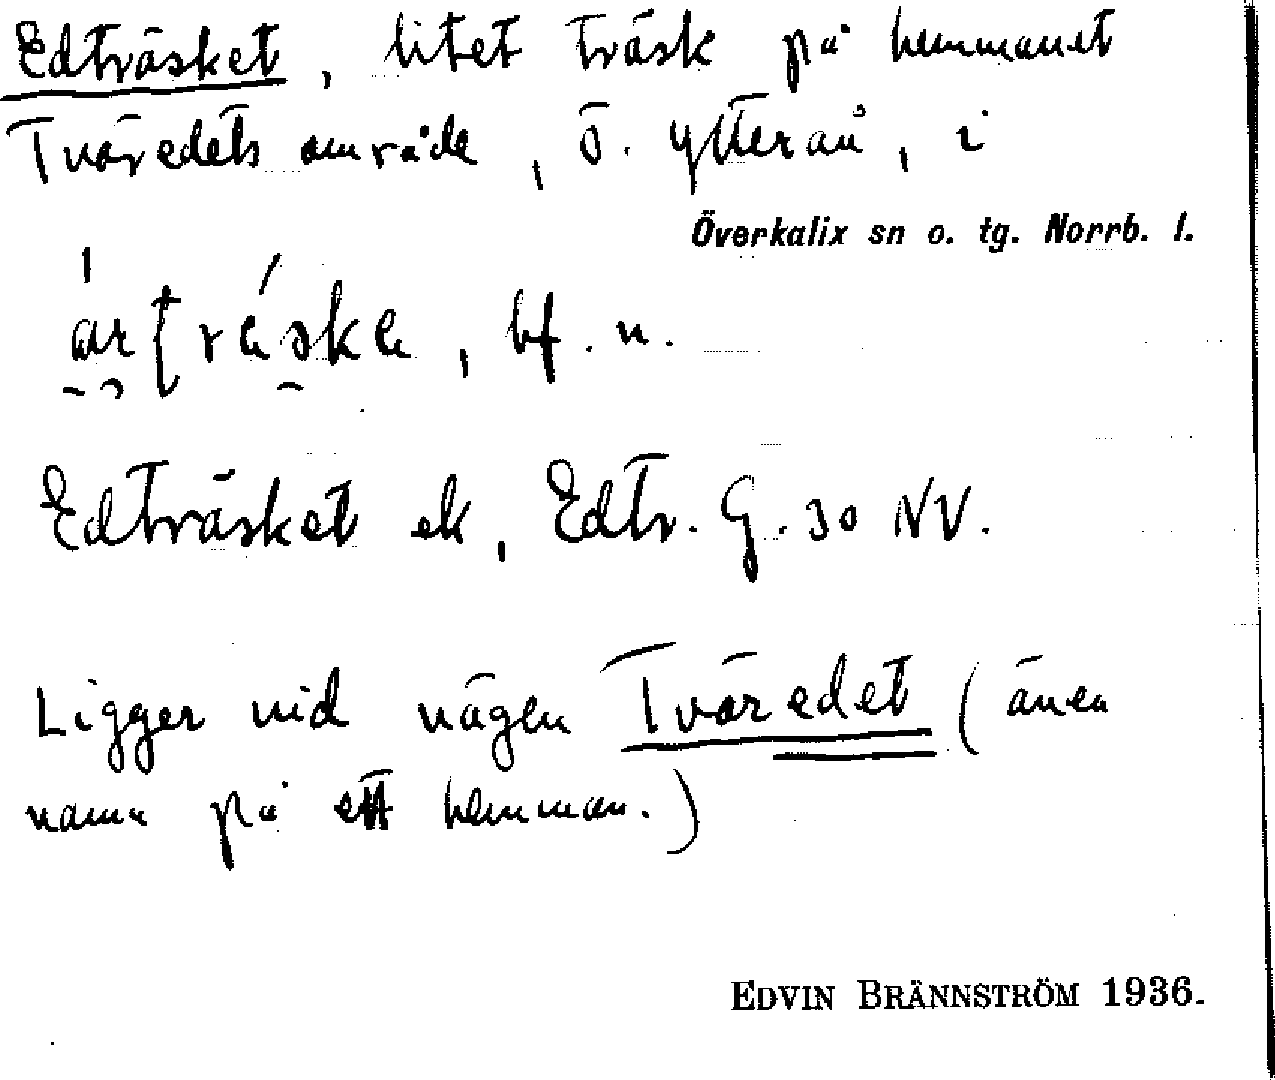 Edträsket, litet träsk på hemmanet
Tväredets område, ö. ytterån, i
Överkalix sn o. tg. Norrb. l.
bf. n.
Edträsket ek, Edtr. G. 30 NV.
Ligger vid vägen Tväredet (även
namn på ett hemman.)
EDVIN BRÄNNSTRÖM 1936.